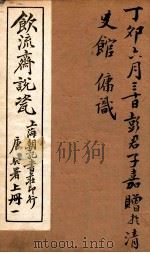 丁卯六月三十日彭君子嘉贈於清
史館 傭識
飲流齋說瓷
上海朝記書莊印行
唐㐱著上冊一